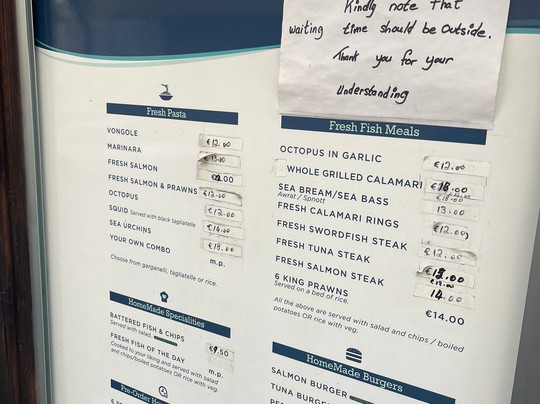 Kindly note that
waiting time should be Outside.
Thank you for your
Understanding
Fresh Pasta
VONGOLE €12.00
MARINARA €13.00
FRESH SALMON
FRESH SALMON & PRAWNS €12.00
OCTOPUS €12.00
SQUID Served with black tagliatelle €14.00
SEA URCHINS €18.00
YOUR OWN COMBO m.p.
Choose from garganelli, tagliatelle or rice.
HomeMade Specialities
BATTERED FISH & CHIPS €9.50
Served with salad
FRESH FISH OF THE DAY m.p.
Cooked to your liking and served with salad
and chips/boiled potatoes OR rice with veg.
Pre-Order
Fresh Fish Meals
OCTOPUS IN GARLIC €12.00
WHOLE GRILLED CALAMARI €18.00
SEA BREAM/SEA BASS €18.00
Awrat / Spnott
FRESH CALAMARI RINGS 13.00
FRESH SWORDFISH STEAK €12.00
FRESH TUNA STEAK €12.00
FRESH SALMON STEAK
6 KING PRAWNS 14.00
Served on a bed of rice.
€14.00
All the above are served with salad and chips / boiled
potatoes OR rice with veg.
HomeMade Burgers
SALMON BURGER
TUNA BURGER